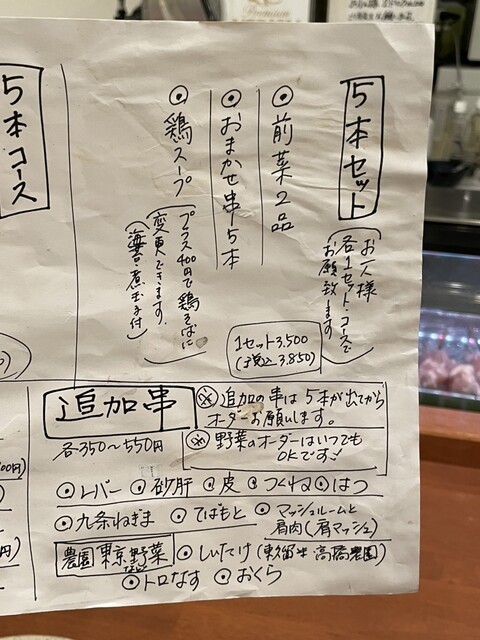 5本セット
(お一人様
各1セット・コースで
お願い致します)
◎前菜2品
◎おまかせ串5本
◎鶏スープ
(プラス400円で鶏そばに
変更できます。
(海苔・煮玉子付)
1セット3.500
(税込3.850)
5本コース
追加串
各350〜550円
※追加の串は5本が出てから
オーダーお願いします。
※野菜のオーダーはいつでも
OKです!
◎レバー ◎砂肝 ◎皮 ◎つくね ◎はつ
◎九条ねぎま ◎てばもと ◎マッシュルームと
肩肉(肩マッシュ)
農園東京野菜
◎しいたけ(東久留米 高橋農園)
◎トロなす ◎おくら
Premium